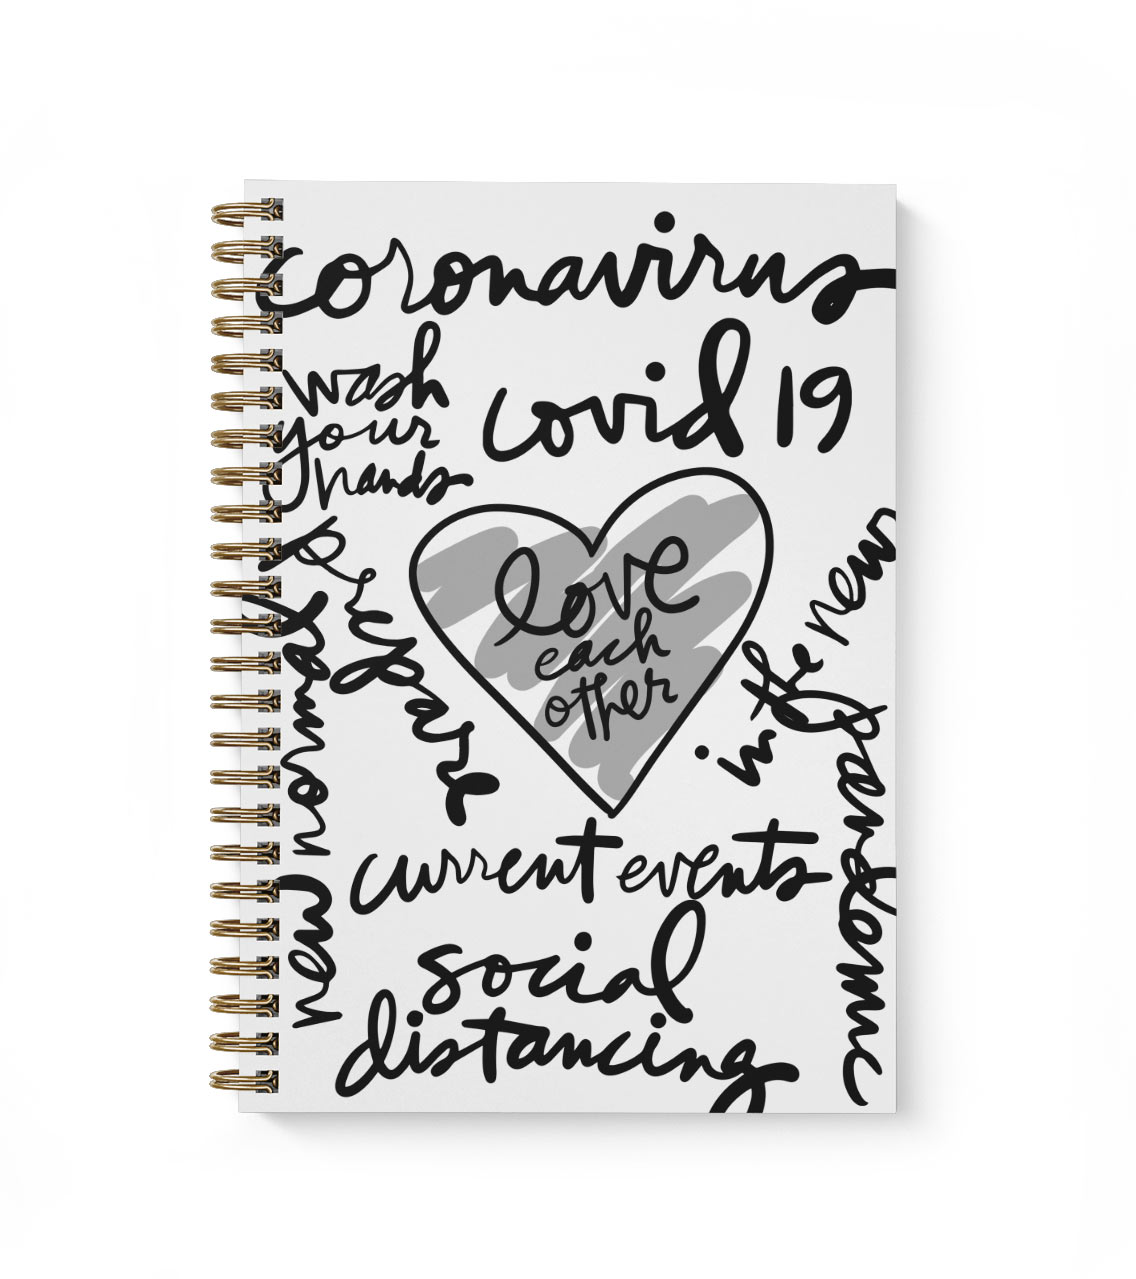 coronavirus
wash
your
hands
covid 19
prepare
love
each
other
in the new
new normal
pandemic
current events
social
distancing